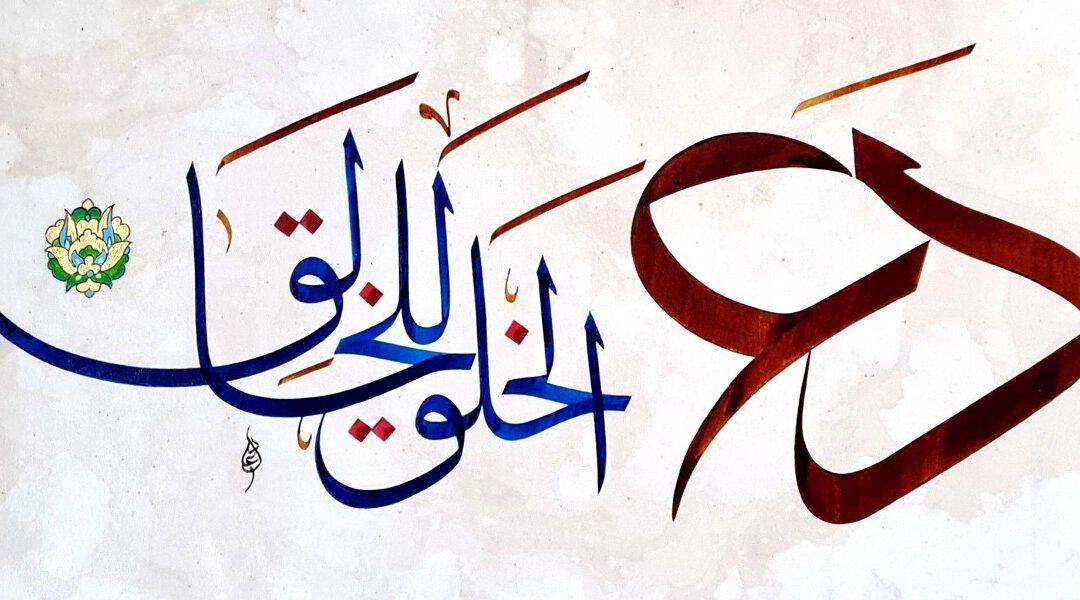 دع الخلق للخالق